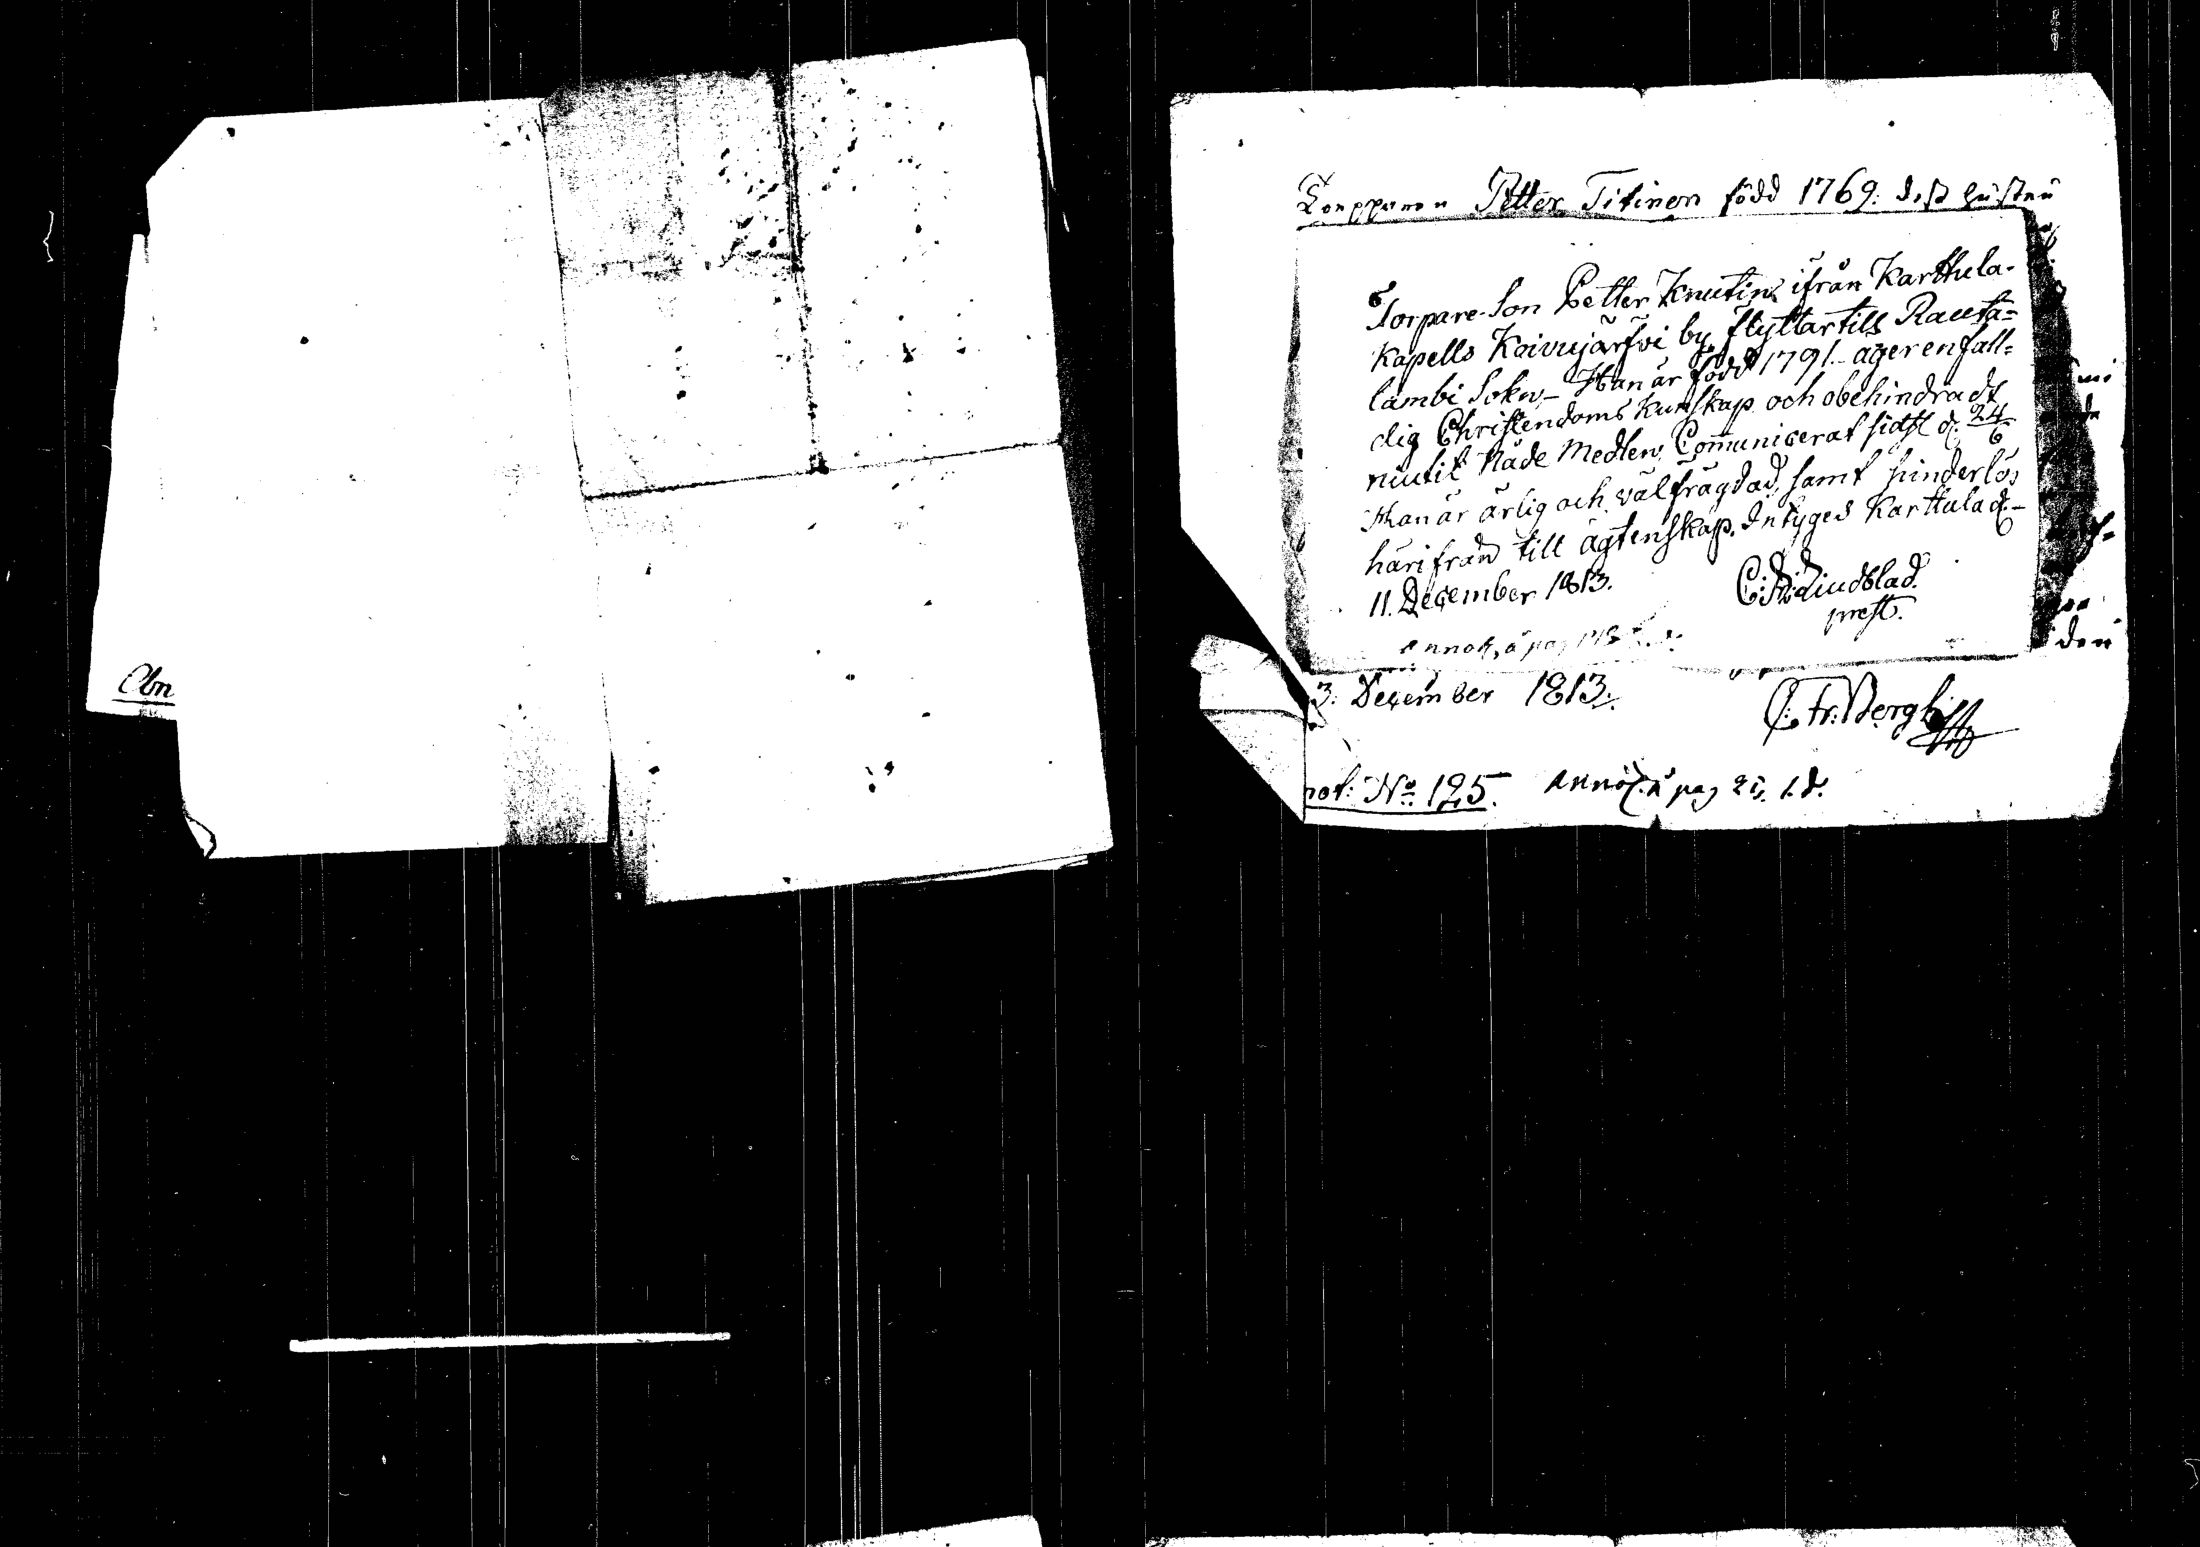 Torpparen Petter Titinen född 1769. dess hustru
Torpare-Son Petter Knutin ifrån Karthula-
Kapells Koivujärfvi by, flyttar till Rauta-
lambi Sokn – Han är född 1791. äger enfall-
dig Christendoms Kunskap och obehindradt
niutit Nåde Medlen, Communicerat sidst d. 24/6
Han är ärlig och välfrägdad, samt hinderlös
härifrån till ägtenskap. Intyges Karttula d. –
11. December 1813.
C: Lindblad.
prest.
annot, å pag
3. December 1813.
C. Fr: Bergh
not: No 125. annot. å pag
Obn
den